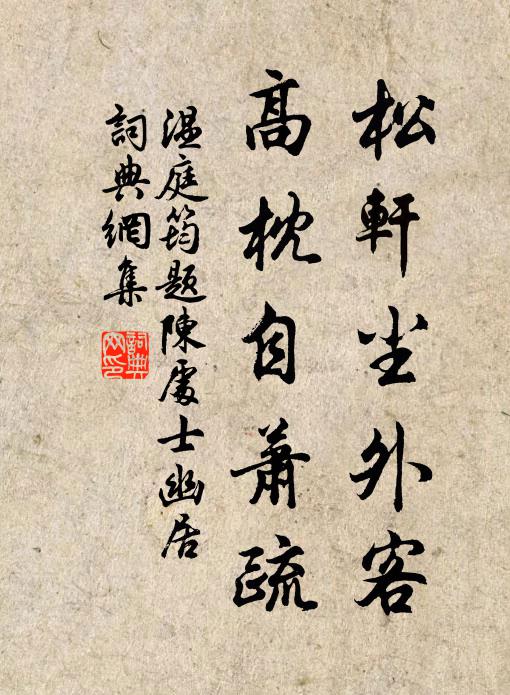 松軒尘外客
高枕自蕭疏
溫庭筠題陳處士幽居
詞典網集
詞典网印